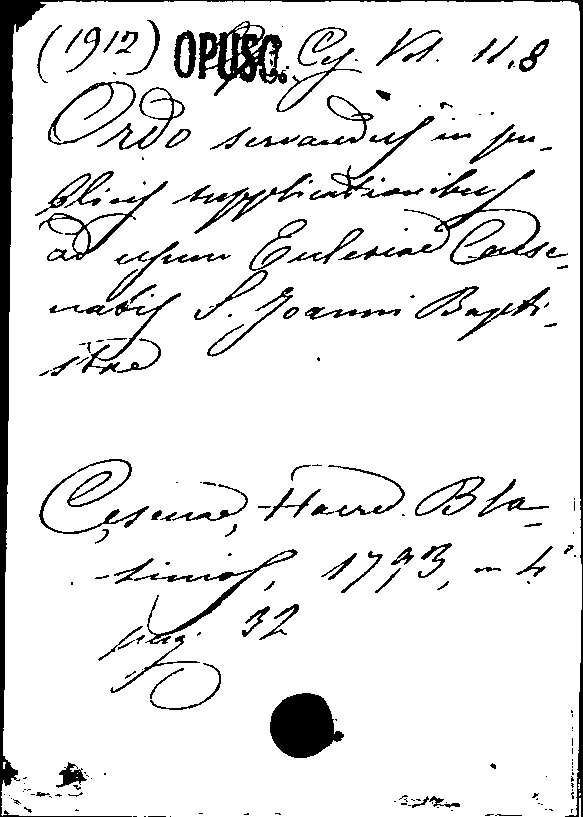 (1912) OPUSC. Cg. Vol. 11.8
Ordo servandus in pu-
blicis supplicationibus
ad usum Ecclesiae Caese-
natis S. Joanni Bapti-
stae
Cesenae, Haered. Bla-
siniof, 1793, in 4°
pag. 32